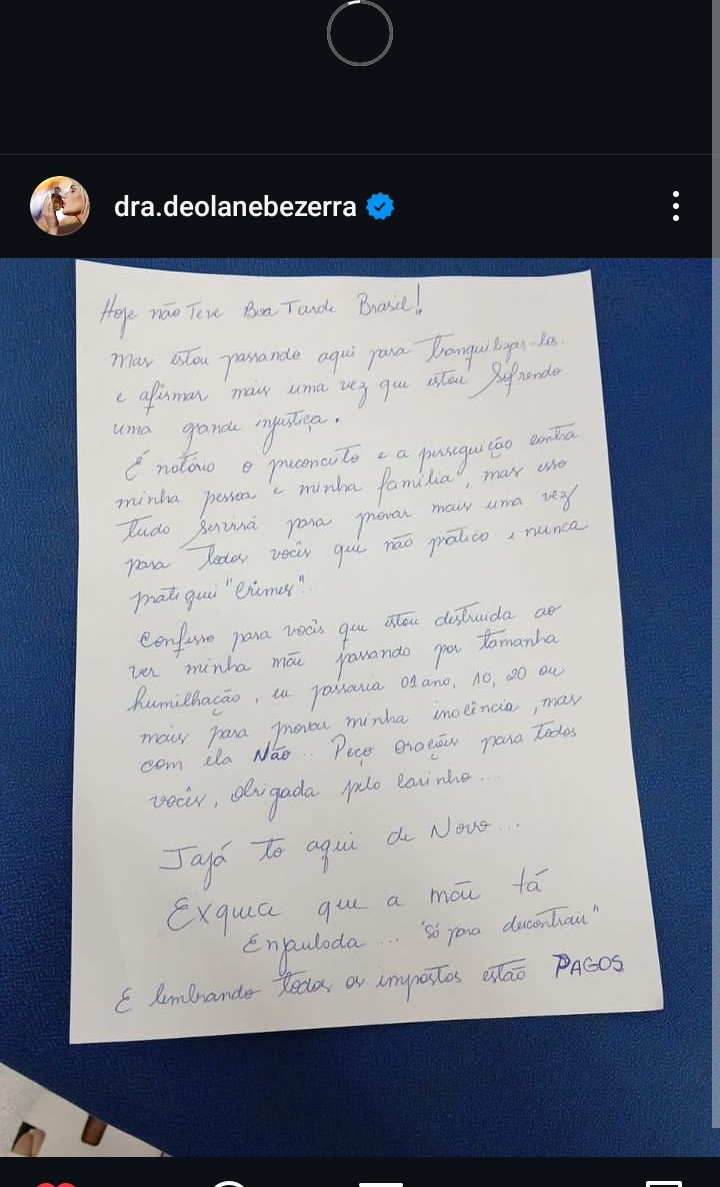 dra.deolanebezerra
Hoje não Teve Boa Tarde Brasil!
Mas estou passando aqui para Tranquilizar-los.
e afirmar mais uma vez que estou Sofrendo
uma grande injustiça.
É notório o preconceito e a perseguição contra
minha pessoa e minha família, mas isso
Tudo Servirá para provar mais uma vez
para Todos vocês que não pratico e nunca
pratiquei "Crimes"..
Confesso para vocês que estou destruida ao
ver minha mãe passando por tamanha
humilhação, eu passaria 01 ano, 10, 20 ou
mais para provar minha inocência, mas
com ela Não... Peço orações para todos
vocês, obrigada pelo carinho...
Jajá to aqui de Novo...
Exquea que a mãe tá
Enjaulada... "Só para descontrair"
E lembrando todos os impostos estão PAGOS